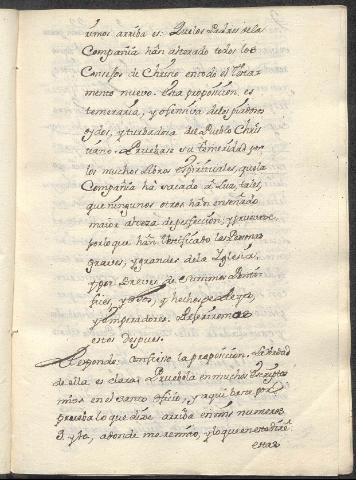 rimos arriba es: Que los Padres de la
Compañia hàn alterado todos los
Consejos de Christo en todo el Testa-
mento nuevo. Esta proposicion es
temeraria, y ofensiva de los piadosos
oydos, y turbadora del Pueblo Chris-
tiano. Pruebase su temeridad por
los muchos libros espirituales, que la
Compañia ha sacado à luz, tales,
que ningunos otros hàn enseñado
maior alteza de perfeccion; y pruebase
por lo que hàn testificado las Personas
graves, y grandes de la Iglesia,
y por Breves de Summos Ponti-
fices, y dichos, y hechos de Reyes,
y Emperadores. Referiremos
estos despues.
Respondo. Confiesso la proposicion. La verdad
de ella es clara; Pruebola en muchos Escriptos
mios en el Santo Oficio, y aqui basta por
prueba lo que dixe arriba en mis numeros
à donde me remito, y lo que en
estas